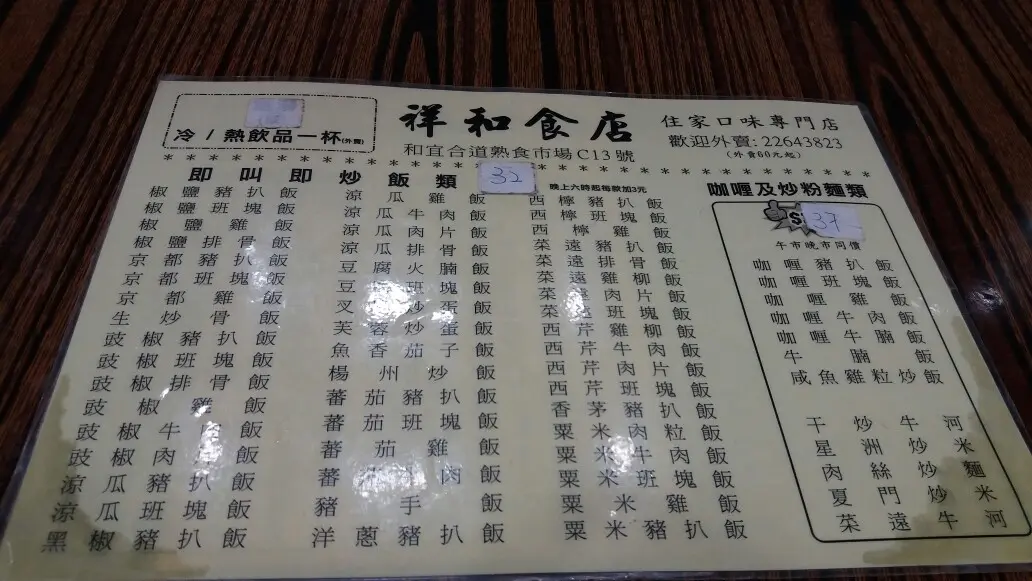 祥和食店
住家口味專門店
冷/熱飲品一杯(外賣)
歡迎外賣: 22643823
(外賣60元起)
和宜合道熟食市場C13號
即叫即炒飯類
32
晚上六時起每款加3元
椒鹽豬扒飯
椒鹽班塊飯
椒鹽雞飯
椒鹽排骨飯
京都豬扒飯
京都班塊飯
京都雞飯
生炒骨飯
豉椒豬扒飯
豉椒班塊飯
豉椒排骨飯
豉椒雞飯
豉椒牛肉飯
豉椒肉片飯
涼瓜豬扒飯
涼瓜班塊飯
黑椒豬扒飯
涼瓜雞飯
涼瓜牛肉飯
涼瓜肉片飯
涼瓜排骨飯
豆腐火腩飯
豆腐班塊飯
叉炒蛋飯
芙蓉炒蛋飯
魚香茄子飯
楊州炒飯
蕃茄豬扒飯
蕃茄班塊飯
蕃茄雞飯
蕃肉飯
豬手飯
洋蔥豬扒飯
西檸豬扒飯
西檸班塊飯
西檸雞飯
菜遠豬扒飯
菜遠排骨飯
菜遠雞柳飯
菜遠肉片飯
菜遠班塊飯
西芹雞柳飯
西芹牛肉飯
西芹肉片飯
西芹班塊飯
香茅豬扒飯
粟米肉粒飯
粟米牛肉飯
粟米班塊飯
粟米雞飯
粟米豬扒飯
咖喱及炒粉麵類
37
午市晚市同價
咖喱豬扒飯
咖喱班塊飯
咖喱雞飯
咖喱牛肉飯
咖喱牛腩飯
牛腩飯
咸魚雞粒炒飯
干炒牛河
星洲炒米
肉絲炒麵
夏門炒米
菜遠牛河